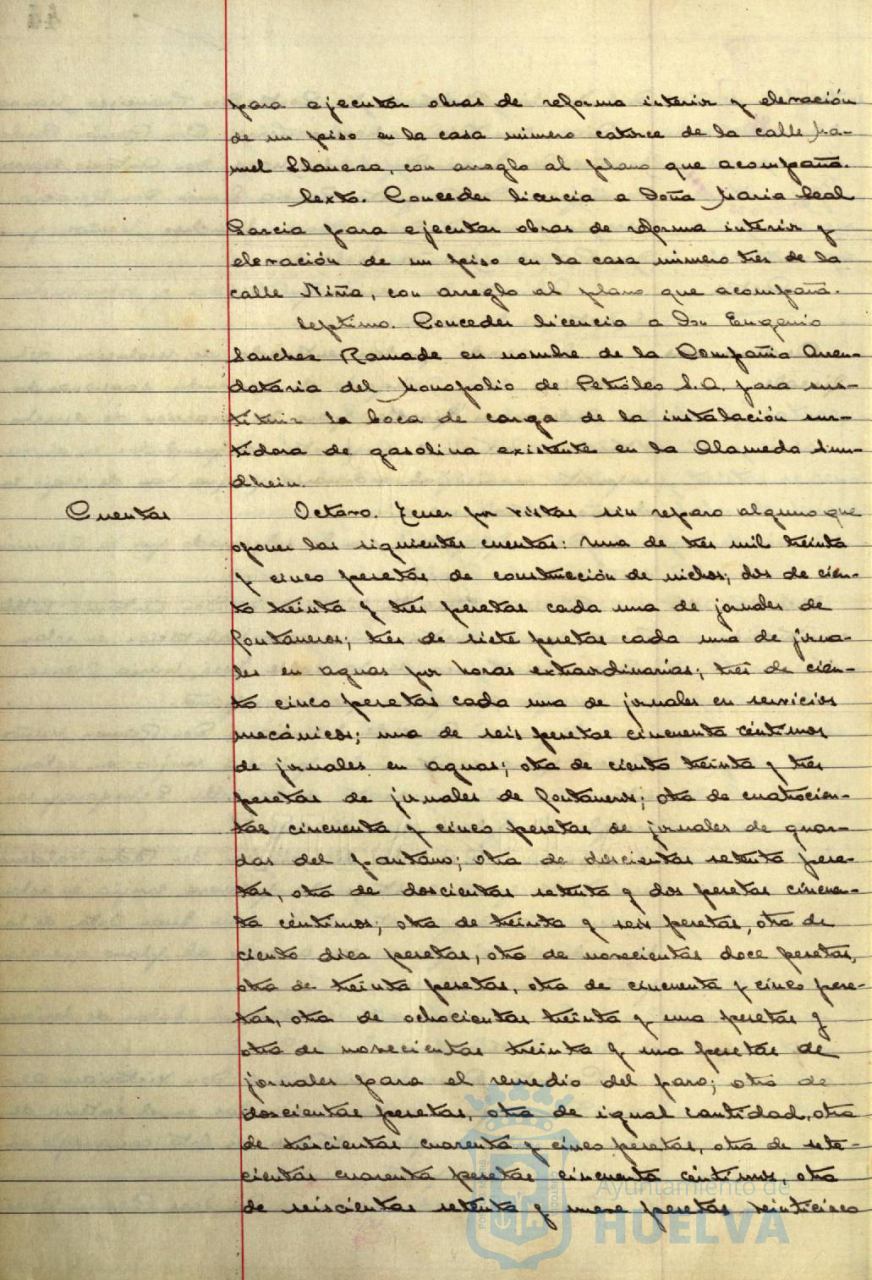 para ejecutar obras de reforma interior y elevación
de un piso en la casa número catorce de la calle Ma-
nuel Llaneza, con arreglo al plano que acompaña.
Sexto. Conceder licencia a Doña Maria Leal
Garcia para ejecutar obras de reforma interior y
elevación de un piso en la casa número tres de la
calle Niña, con arreglo al plano que acompaña.
Septimo. Conceder licencia a Don Eugenio
Sanchez Ramade en nombre de la Compañia Arren-
dataria del Monopolio de Petróleo S.A. para sus-
tituir la boca de carga de la instalación sur-
tidora de gasolina existente en la Alameda Sun-
dhein.
Cuentas
Octavo. Tener por vistas sin reparo alguno que
oponer las siguientes cuentas: una de tres mil treinta
y cinco pesetas de construcción de nichos; dos de cien-
to treinta y tres pesetas cada una de jornales de
fontaneros; tres de siete pesetas cada una de jorna-
les en aguas por horas extraordinarias; tres de cien-
to cinco pesetas cada una de jornales en servicios
mecánicos; una de seis pesetas cincuenta céntimos
de jornales en aguas; otra de ciento treinta y tres
pesetas de jornales de fontaneros; otra de cuatrocien-
tas cincuenta y cinco pesetas de jornales de guar-
das del pantano; otra de doscientas setenta pese-
tas, otra de doscientas setenta y dos pesetas cincuen-
ta céntimos; otra de treinta y seis pesetas, otra de
ciento diez pesetas, otra de novecientas doce pesetas,
otra de treinta pesetas, otra de cincuenta y cinco pese-
tas, otra de ochocientas treinta y una pesetas y
otra de novecientas treinta y una pesetas de
jornales para el remedio del paro; otra de
doscientas pesetas, otra de igual cantidad, otra
de trescientas cuarenta y cinco pesetas, otra de sete-
cientas cuarenta pesetas cincuenta céntimos, otra
de seiscientas setenta y nueve pesetas veinticinco
Ayuntamiento de
HUELVA